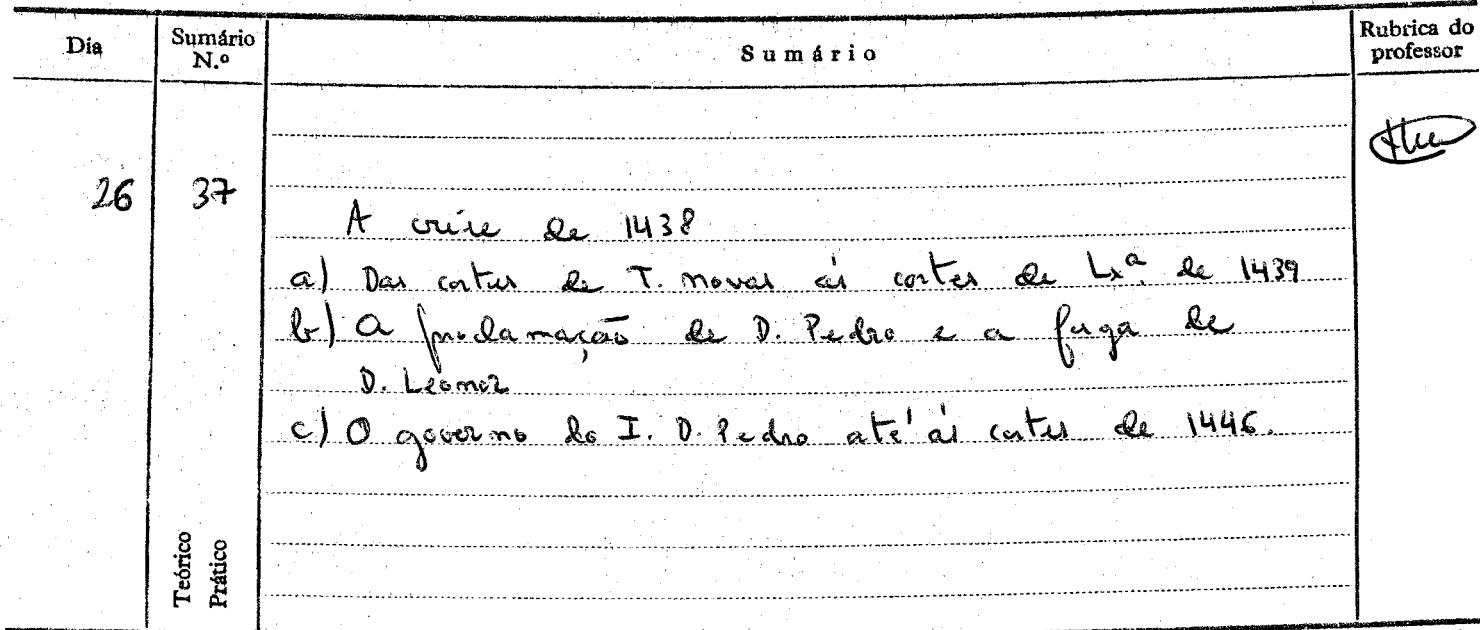 Dia Sumário N.º Sumário Rubrica do professor
26 37
A crise de 1438
a) Das cortes de T. Novas às cortes de Lxª. de 1439
b) A proclamação de D. Pedro e a fuga de
D. Leonor
c) O governo do I. D. Pedro até às cortes de 1446.
Teórico
Prático